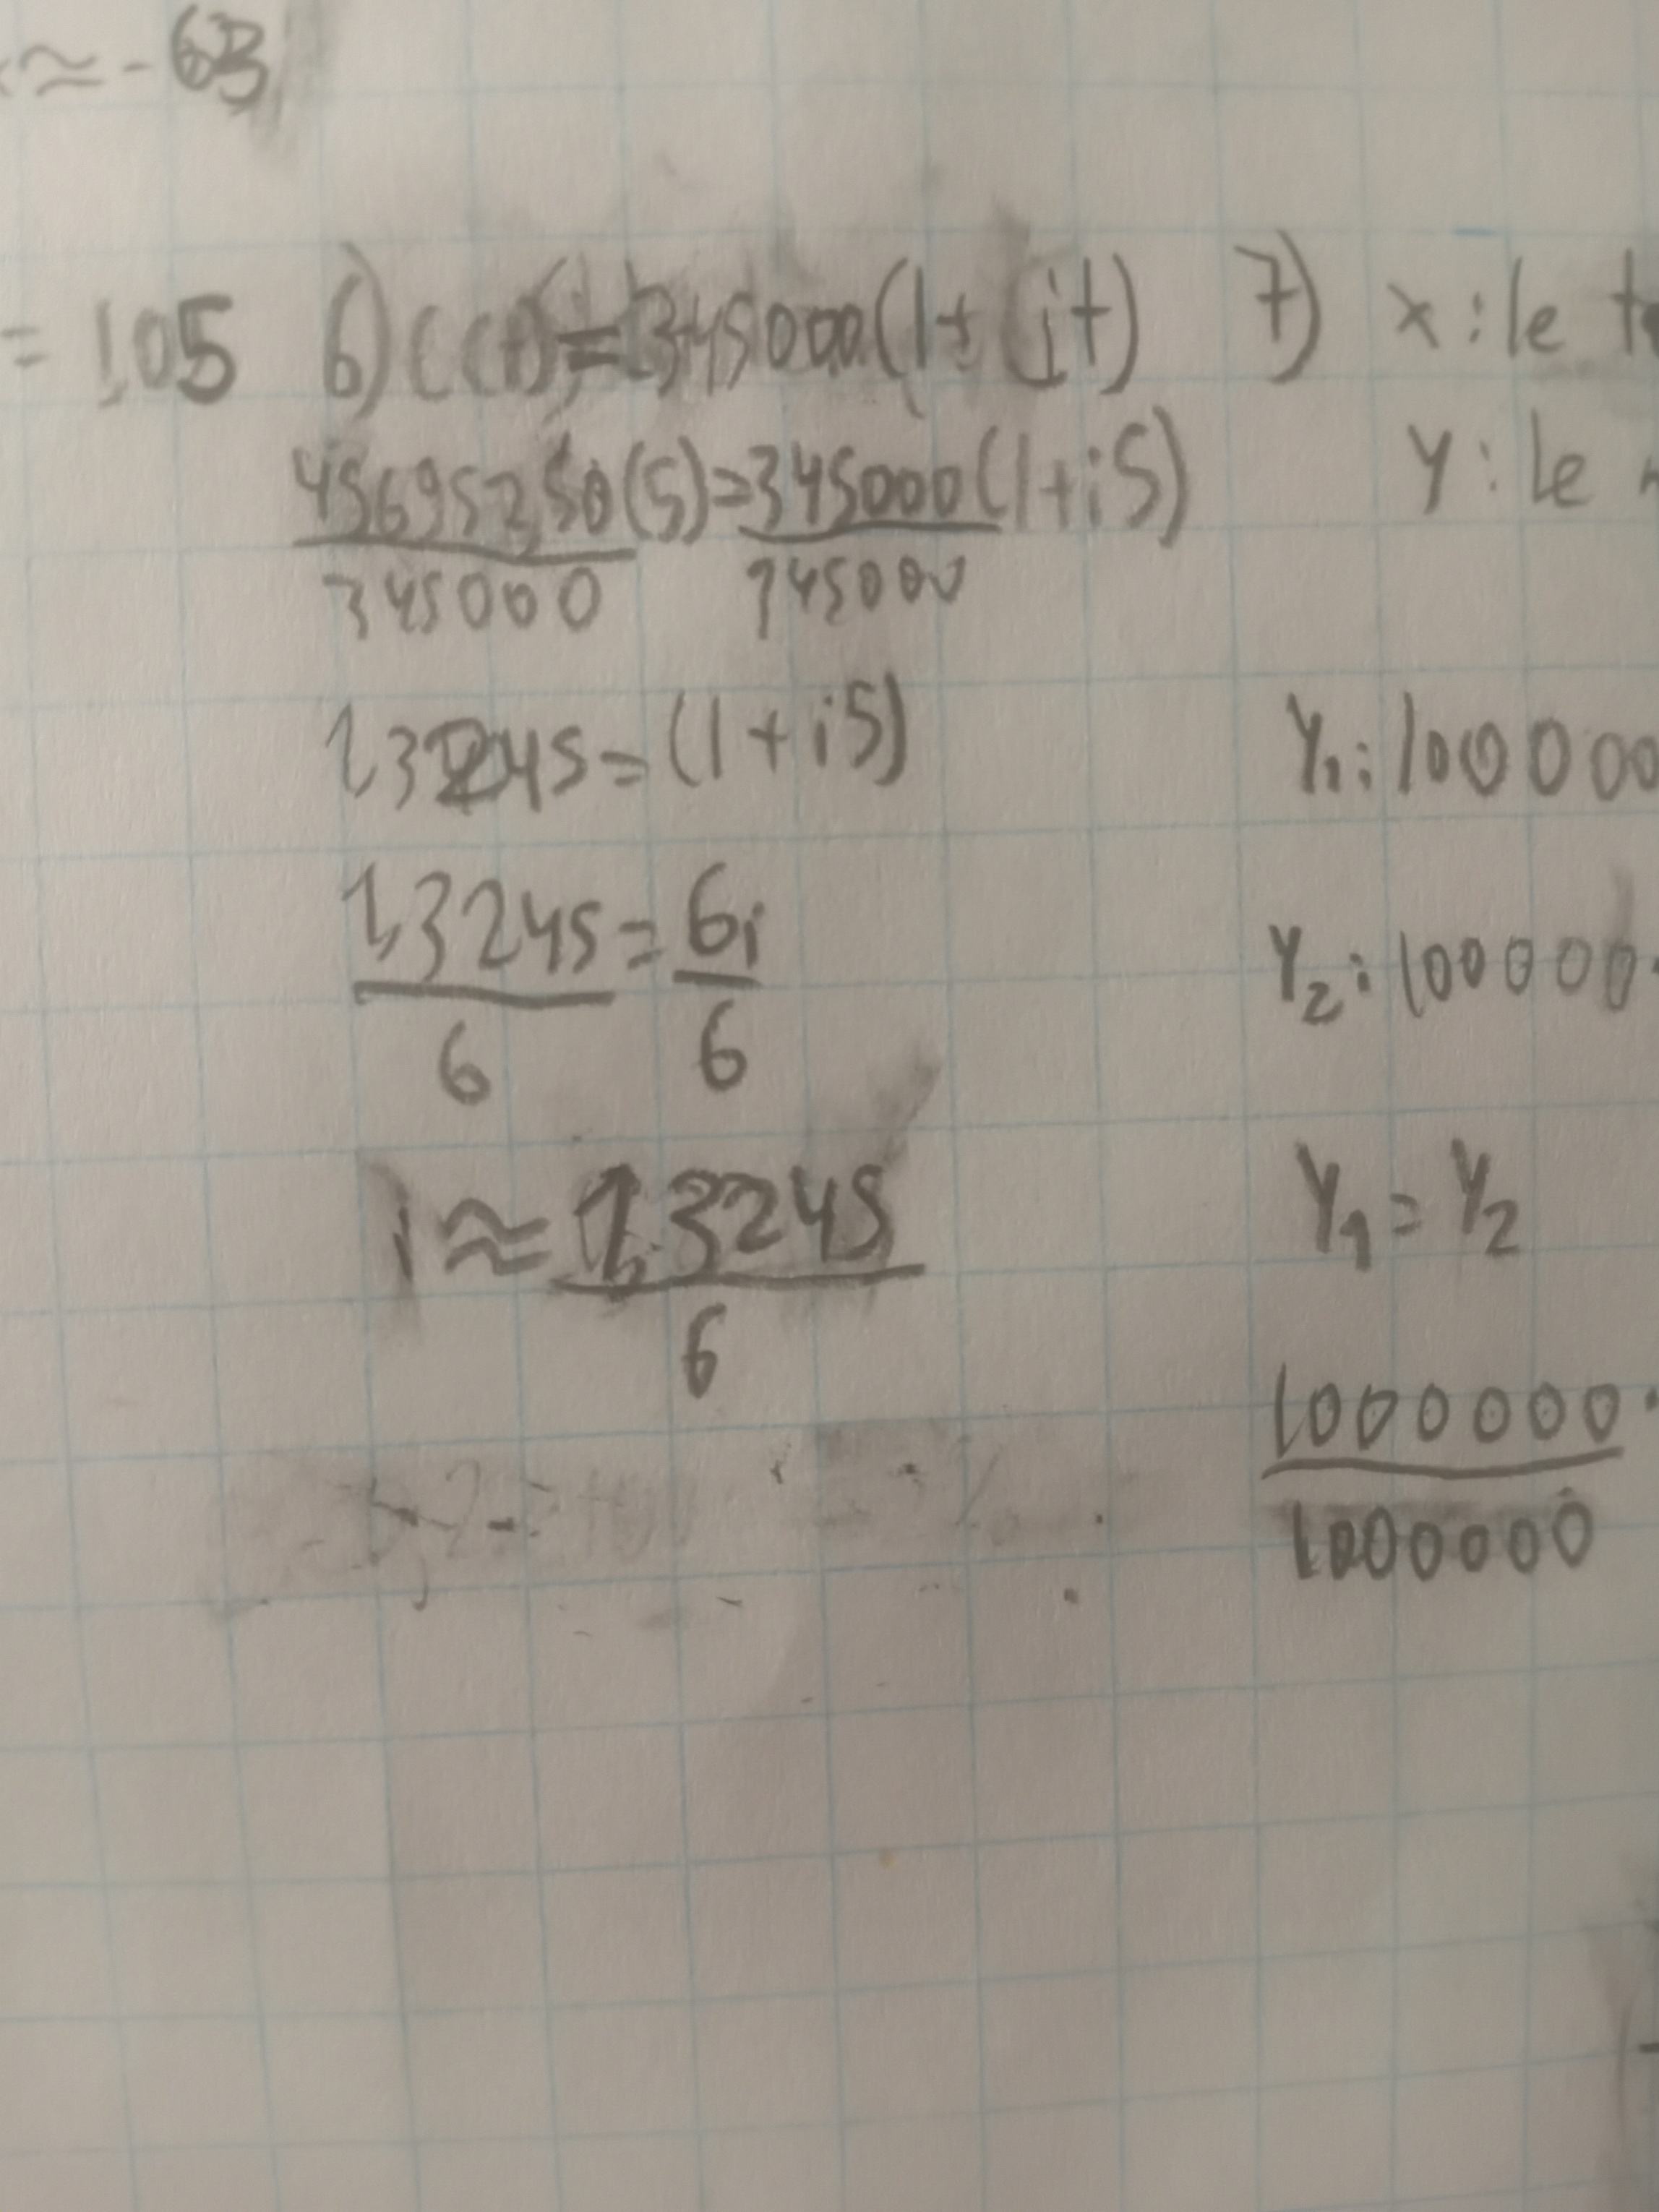 ≈ -63
= 105
6) C(t) = 345000(1 + it)
456952,50(5) = 345000(1+i5)
345000 345000
1,3245 = (1 + i5)
1,3245 = 6i
6 6
i ≈ 1,3245
6
7) x : le
y : le
Y1 : 100000
Y2 : 100000
Y1 = Y2
1000000
1000000